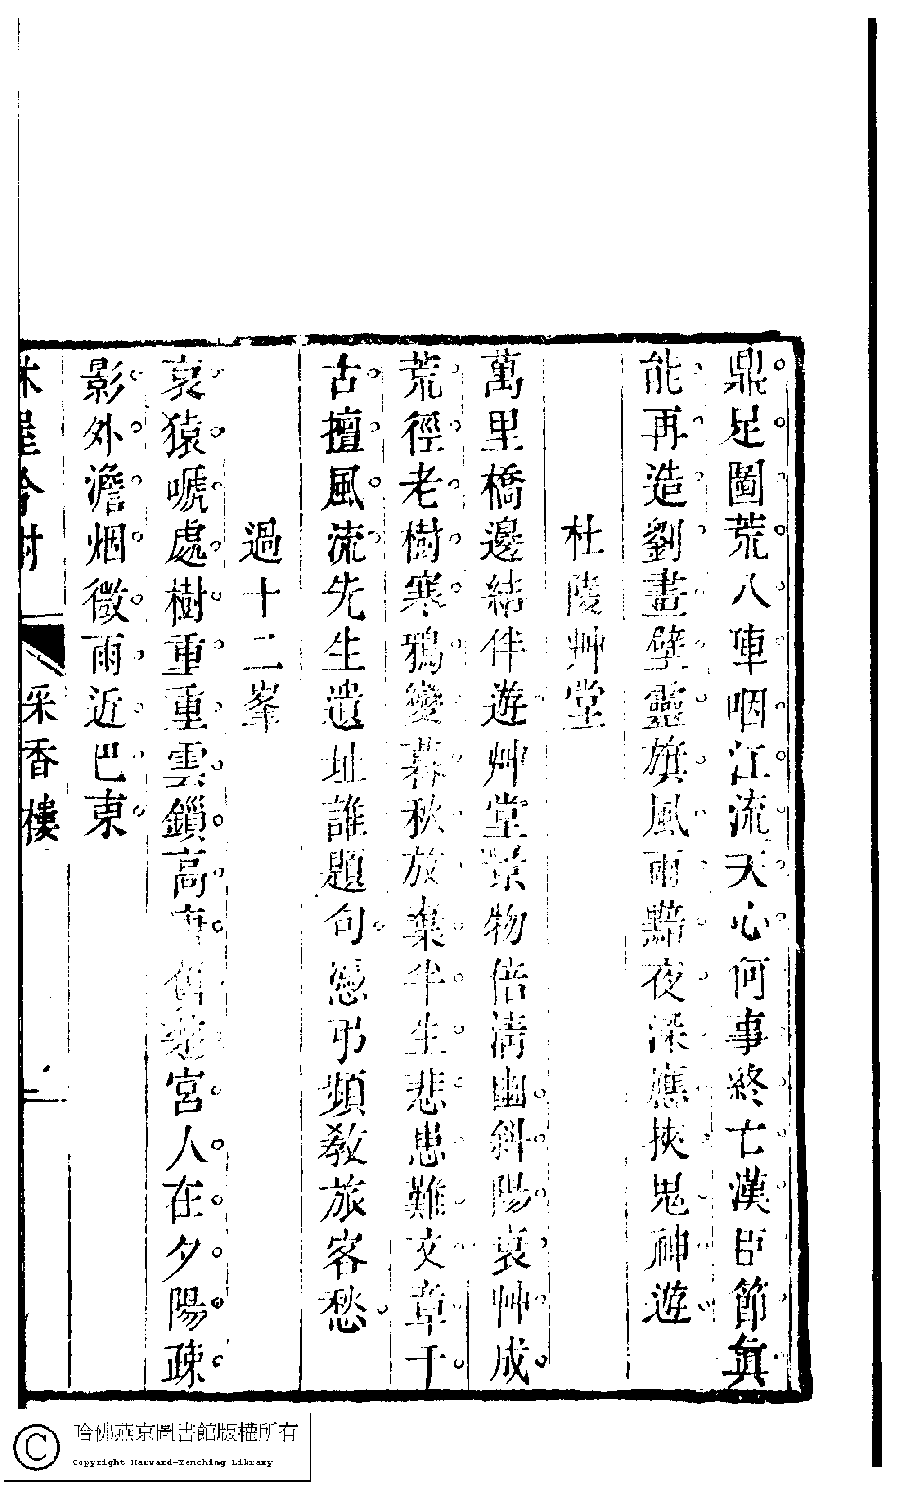 鼎足圖荒八陣咽江流天心何事終亡漢臣節眞
能再造劉畫壁靈旗風雨黯夜深應挾鬼神遊
杜陵艸堂
萬里橋邊結伴遊艸堂景物倍淸幽斜陽衰艸成
荒徑老樹寒鴉變暮秋放棄半生悲患難文章千
古擅風流先生遺址誰題句憑弔頻教旅客愁
過十二峯
哀猿嗁處樹重重雲鎖高唐舊楚宮人在夕陽疎
影外澹烟微雨近巴東
林屋唫榭
采香樓
哈佛燕京圖書館版權所有
Copyright Harvard-Yenching Library